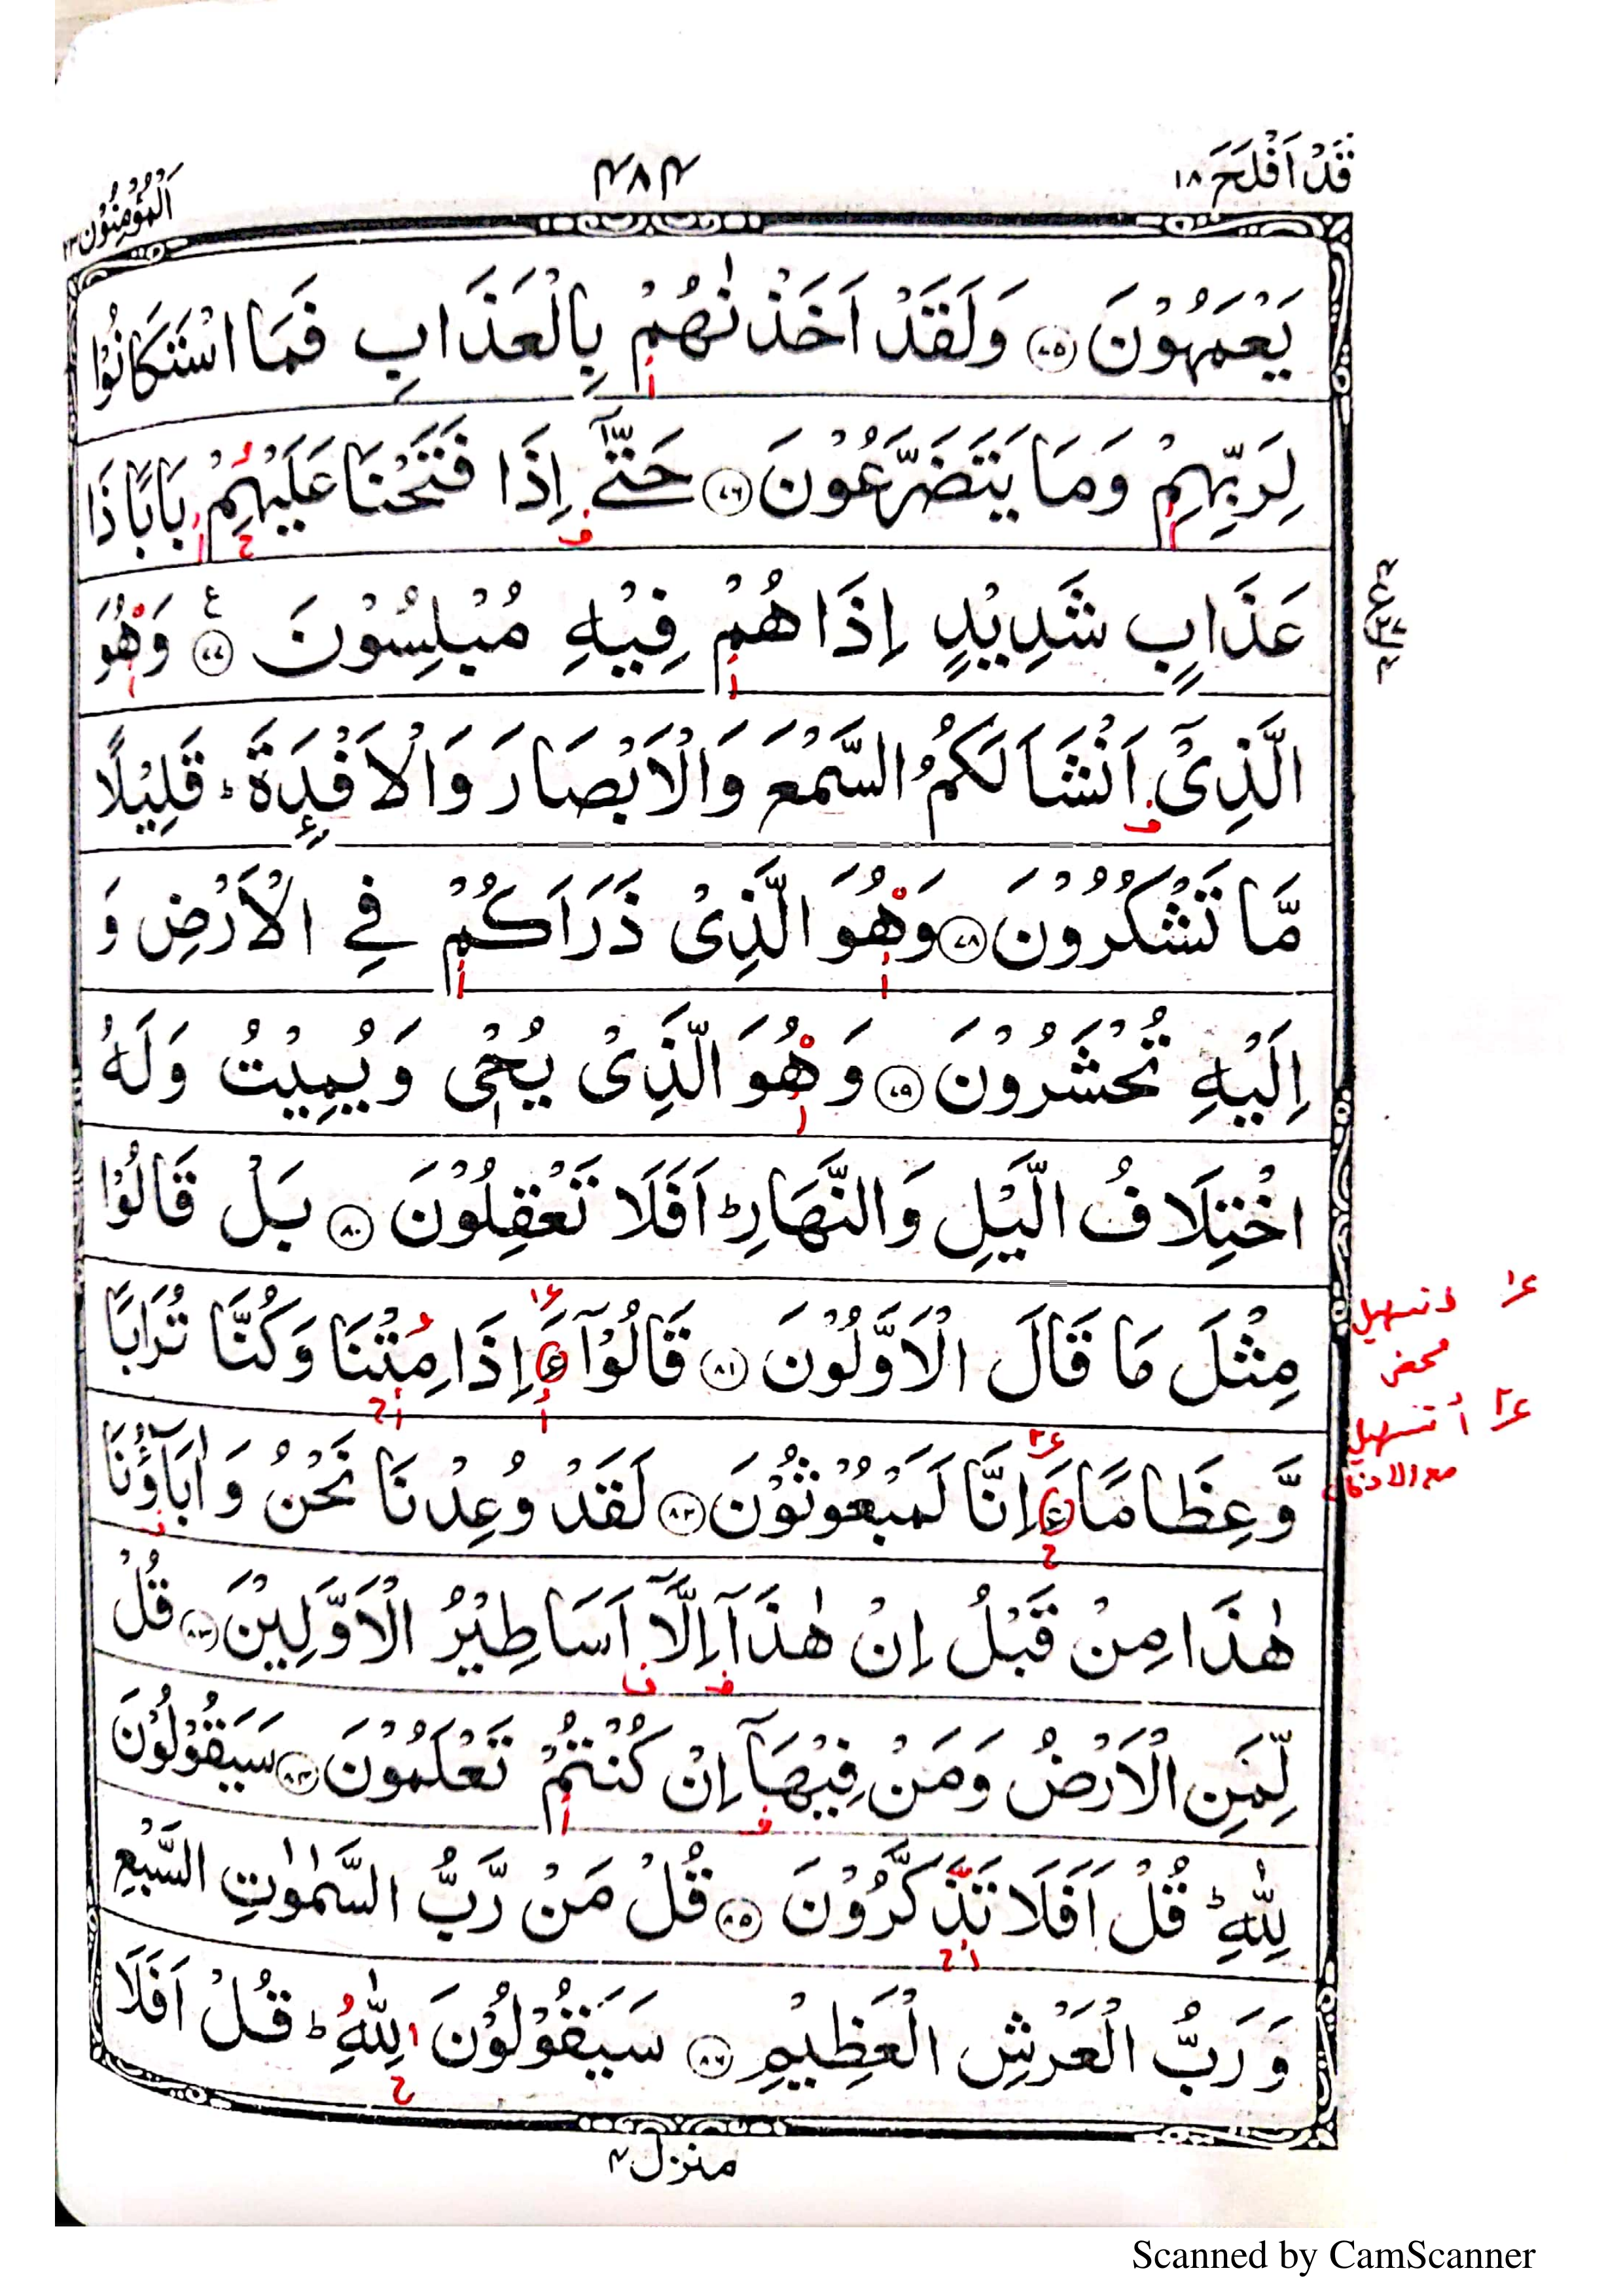 قَدْ اَفْلَحَ ١٨
٤٨٤
اَلْمُؤْمِنُوْن ٢٣
يَعْمَهُوْنَ ﴿٧٥﴾ وَلَقَدْ اَخَذْنٰهُمْ بِالْعَذَابِ فَمَا اسْتَكَانُوْا
لِرَبِّهِمْ وَمَا يَتَضَرَّعُوْنَ ﴿٧٦﴾ حَتّٰٓى اِذَا فَتَحْنَا عَلَيْهِمْ بَابًا ذَا
عَذَابٍ شَدِيْدٍ اِذَا هُمْ فِيْهِ مُبْلِسُوْنَ ﴿٧٧﴾ ع وَهُوَ
الَّذِىْٓ اَنْشَاَ لَكُمُ السَّمْعَ وَالْاَبْصَارَ وَالْاَفْـِٕدَةَ ؕ قَلِيْلًا
مَّا تَشْكُرُوْنَ ﴿٧٨﴾ وَهُوَ الَّذِىْ ذَرَاَكُمْ فِى الْاَرْضِ وَ
اِلَيْهِ تُحْشَرُوْنَ ﴿٧٩﴾ وَهُوَ الَّذِىْ يُحْىٖ وَيُمِيْتُ وَلَهُ
اخْتِلَافُ الَّيْلِ وَالنَّهَارِ ؕ اَفَلَا تَعْقِلُوْنَ ﴿٨٠﴾ بَلْ قَالُوْا
مِثْلَ مَا قَالَ الْاَوَّلُوْنَ ﴿٨١﴾ قَالُوْٓا ءَاِذَا مِتْنَا وَكُنَّا تُرَابًا
تسهيل
محض
وَّعِظَامًا ءَاِنَّا لَمَبْعُوْثُوْنَ ﴿٨٢﴾ لَقَدْ وُعِدْنَا نَحْنُ وَاٰبَآؤُنَا
تسهيل
مع الادخال
هٰذَا مِنْ قَبْلُ اِنْ هٰذَآ اِلَّآ اَسَاطِيْرُ الْاَوَّلِيْنَ ﴿٨٣﴾ قُلْ
لِّمَنِ الْاَرْضُ وَمَنْ فِيْهَآ اِنْ كُنْتُمْ تَعْلَمُوْنَ ﴿٨٤﴾ سَيَقُوْلُوْنَ
لِلّٰهِ ؕ قُلْ اَفَلَا تَذَكَّرُوْنَ ﴿٨٥﴾ قُلْ مَنْ رَّبُّ السَّمٰوٰتِ السَّبْعِ
وَرَبُّ الْعَرْشِ الْعَظِيْمِ ﴿٨٦﴾ سَيَقُوْلُوْنَ لِلّٰهِ ؕ قُلْ اَفَلَا
منزل ٤
Scanned by CamScanner